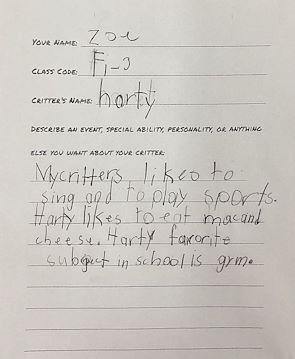 YOUR NAME: Zoe
CLASS CODE: F1-3
CRITTER'S NAME: harty
DESCRIBE AN EVENT, SPECIAL ABILITY, PERSONALITY, OR ANYTHING
ELSE YOU WANT ABOUT YOUR CRITTER:
My critters likes to
sing and to play sports.
Harty likes to eat mac and
cheese. Harty favorite
subject in school is gym.